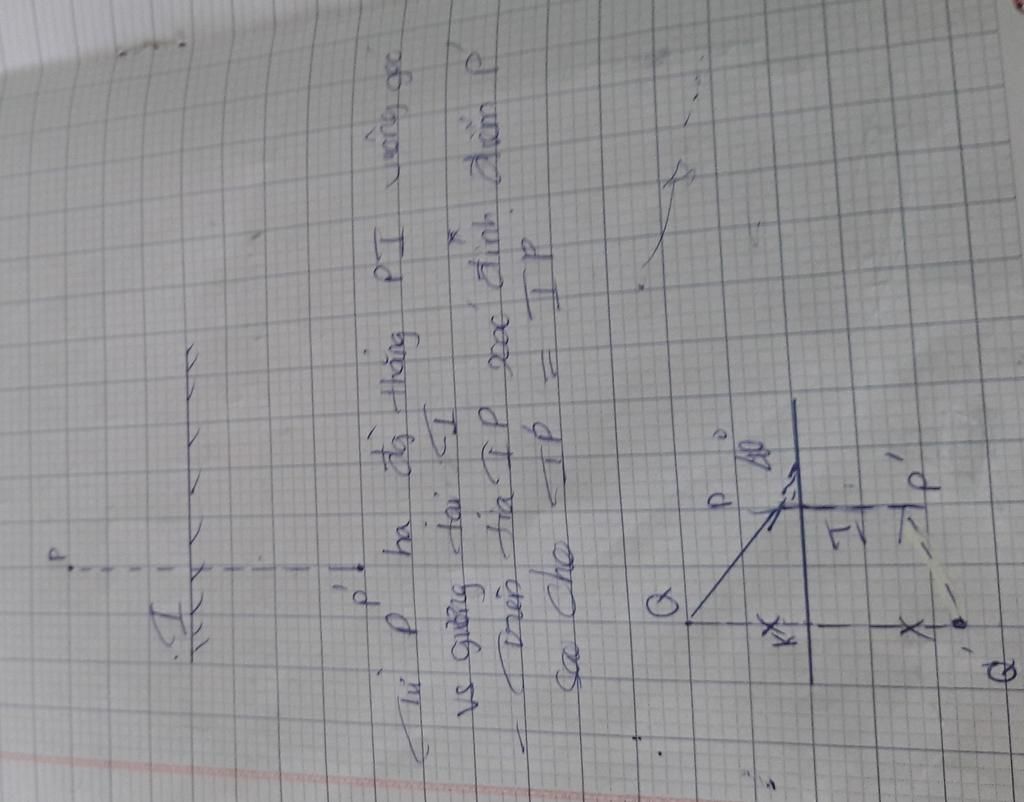 P
I
P'
Từ P hạ đg thẳng PI vuông góc
vs gương tại I
- Trên tia IP xác định điểm P'
sao cho IP' = IP
Q
P
K
I
P'
Q'